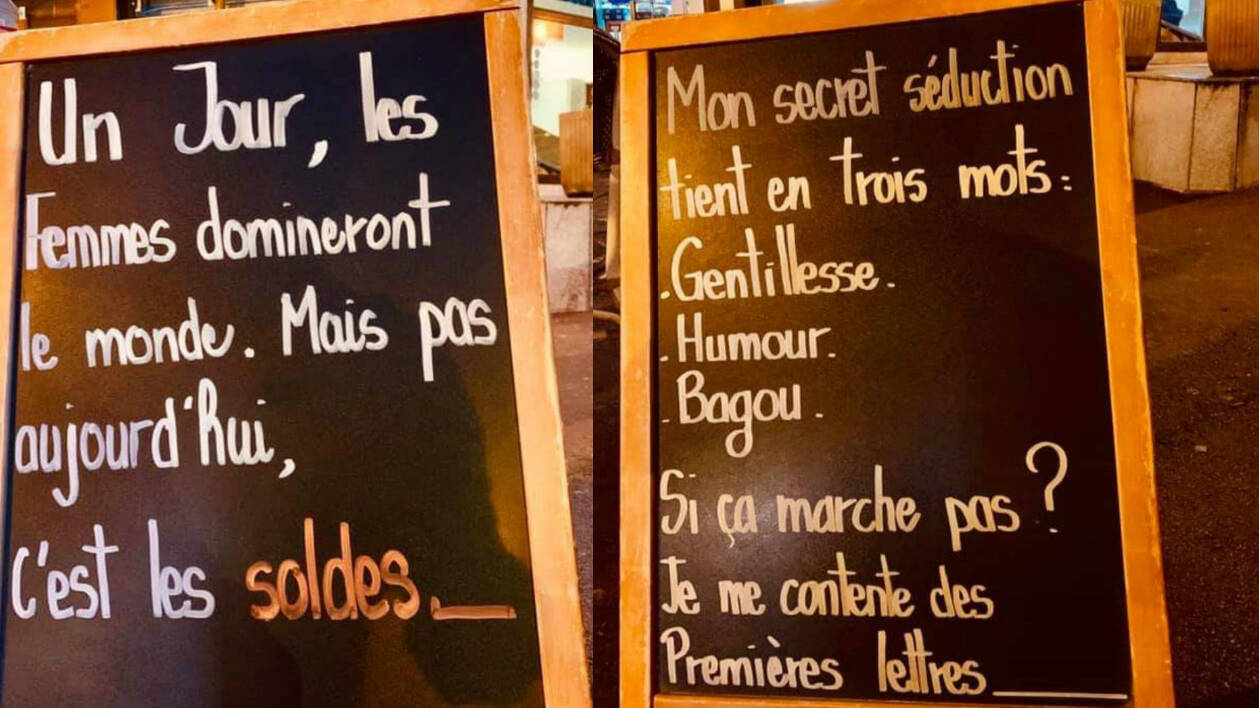 Un Jour, les
Femmes domineront
le monde. Mais pas
aujourd'hui,
C'est les soldes
Mon secret séduction
tient en trois mots :
. Gentillesse.
. Humour.
. Bagou.
Si ça marche pas ?
Je me contente des
Premières lettres